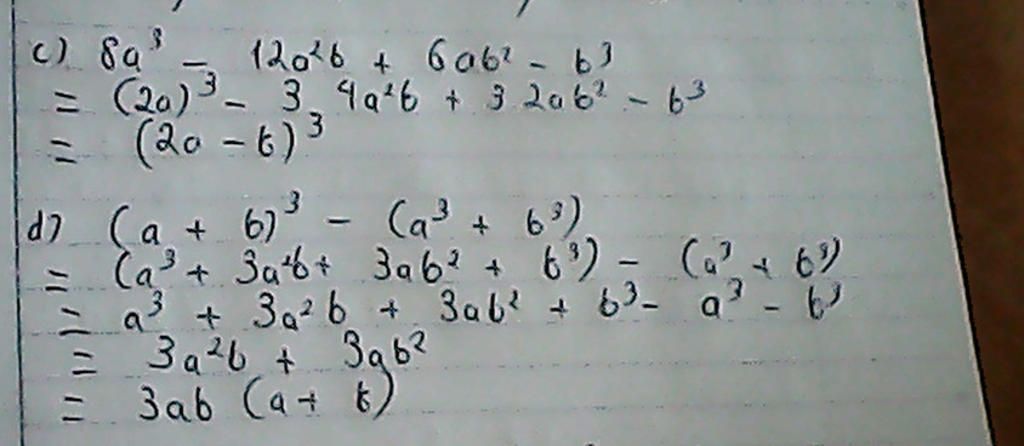 c) 8a³ - 12a²b + 6ab² - b³
= (2a)³ - 3.4a²b + 3.2ab² - b³
= (2a - b)³
d) (a + b)³ - (a³ + b³)
= (a³ + 3a²b + 3ab² + b³) - (a³ + b³)
= a³ + 3a²b + 3ab² + b³ - a³ - b³
= 3a²b + 3ab²
= 3ab (a + b)